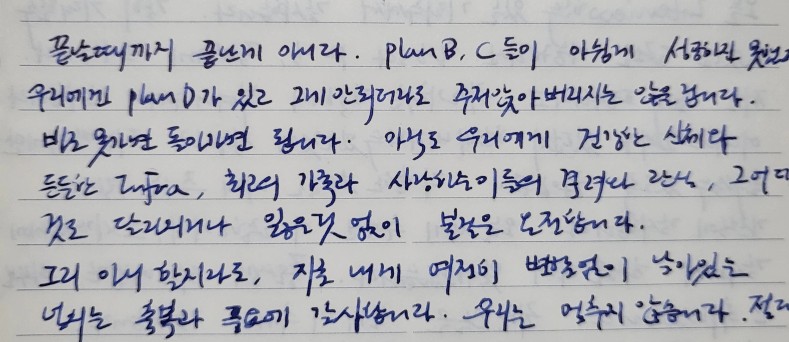 끝날때까지 끝난게 아니다. plan B, C 들이 아쉽게 성공하진 못했고
우리에겐 plan D가 있고 그게 안되더라도 주저앉아버리지는 않을 겁니다.
바로 못가면 돌아가면 됩니다. 아직도 우리에게 건강한 신체와
든든한 Infra, 최고의 가족과 사랑하는이들의 격려와 관심, 그어떤
것도 달라지거나 잃은것 없이 불걸은 도전합니다.
그리 아니 할지라도, 지금 내게 여전히 변함없이 남아있는
넘치는 축복과 풍요에 감사합니다. 우리는 멈추지 않습니다. 절대